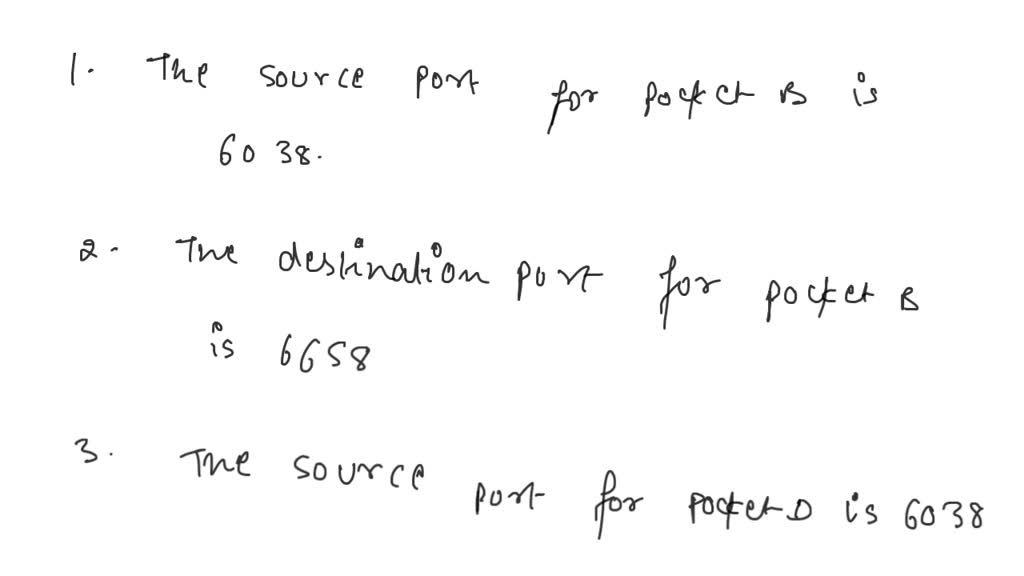 1. The source port for pocket B is
6038.
2. The destination port for pocket B
is 6658
3. The source port for pocket D is 6038